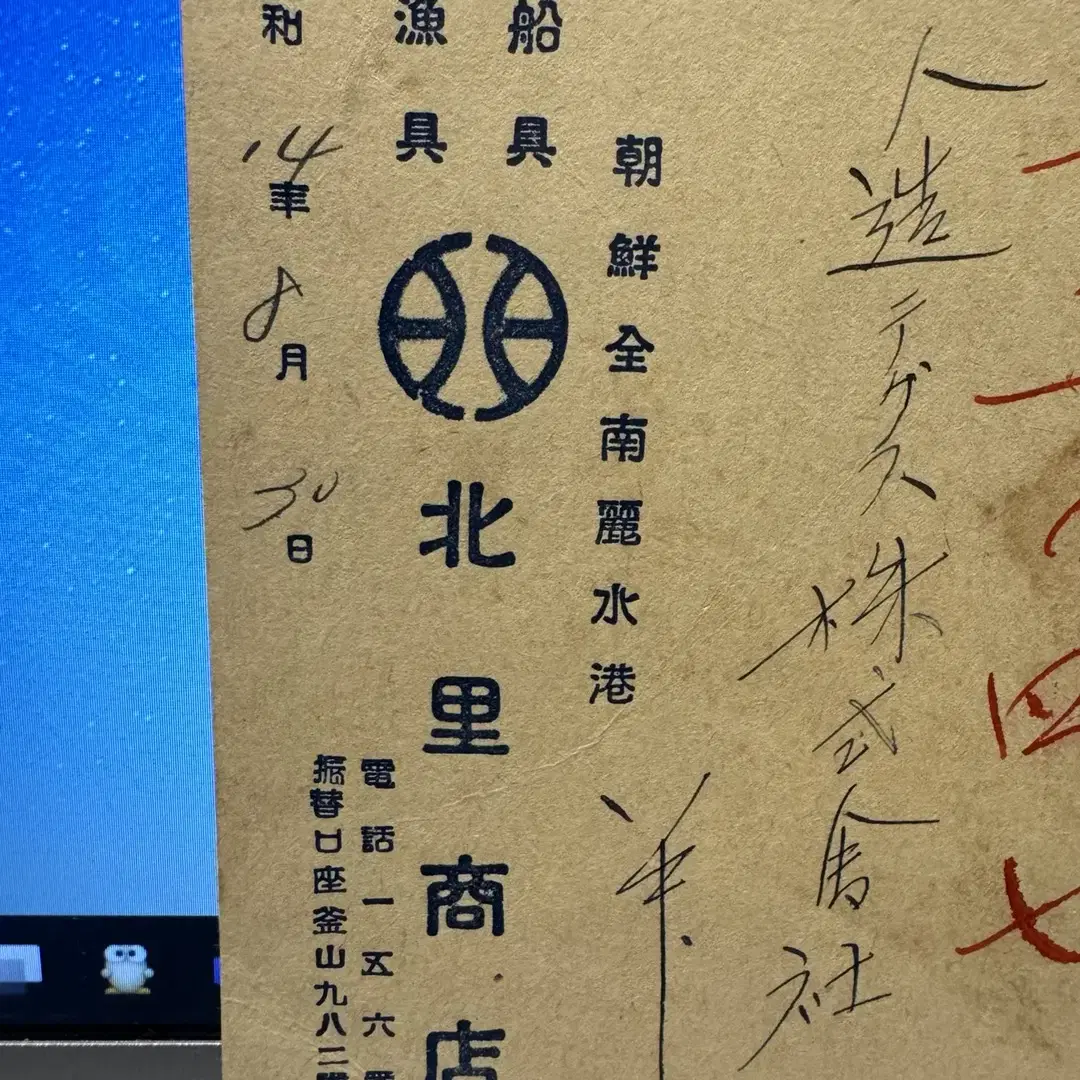 四
七
人造テグス株式會社
朝鮮全南麗水港
船具
漁具
北里商店
電話一五六
振替口座釜山九八二
和14年8月30日